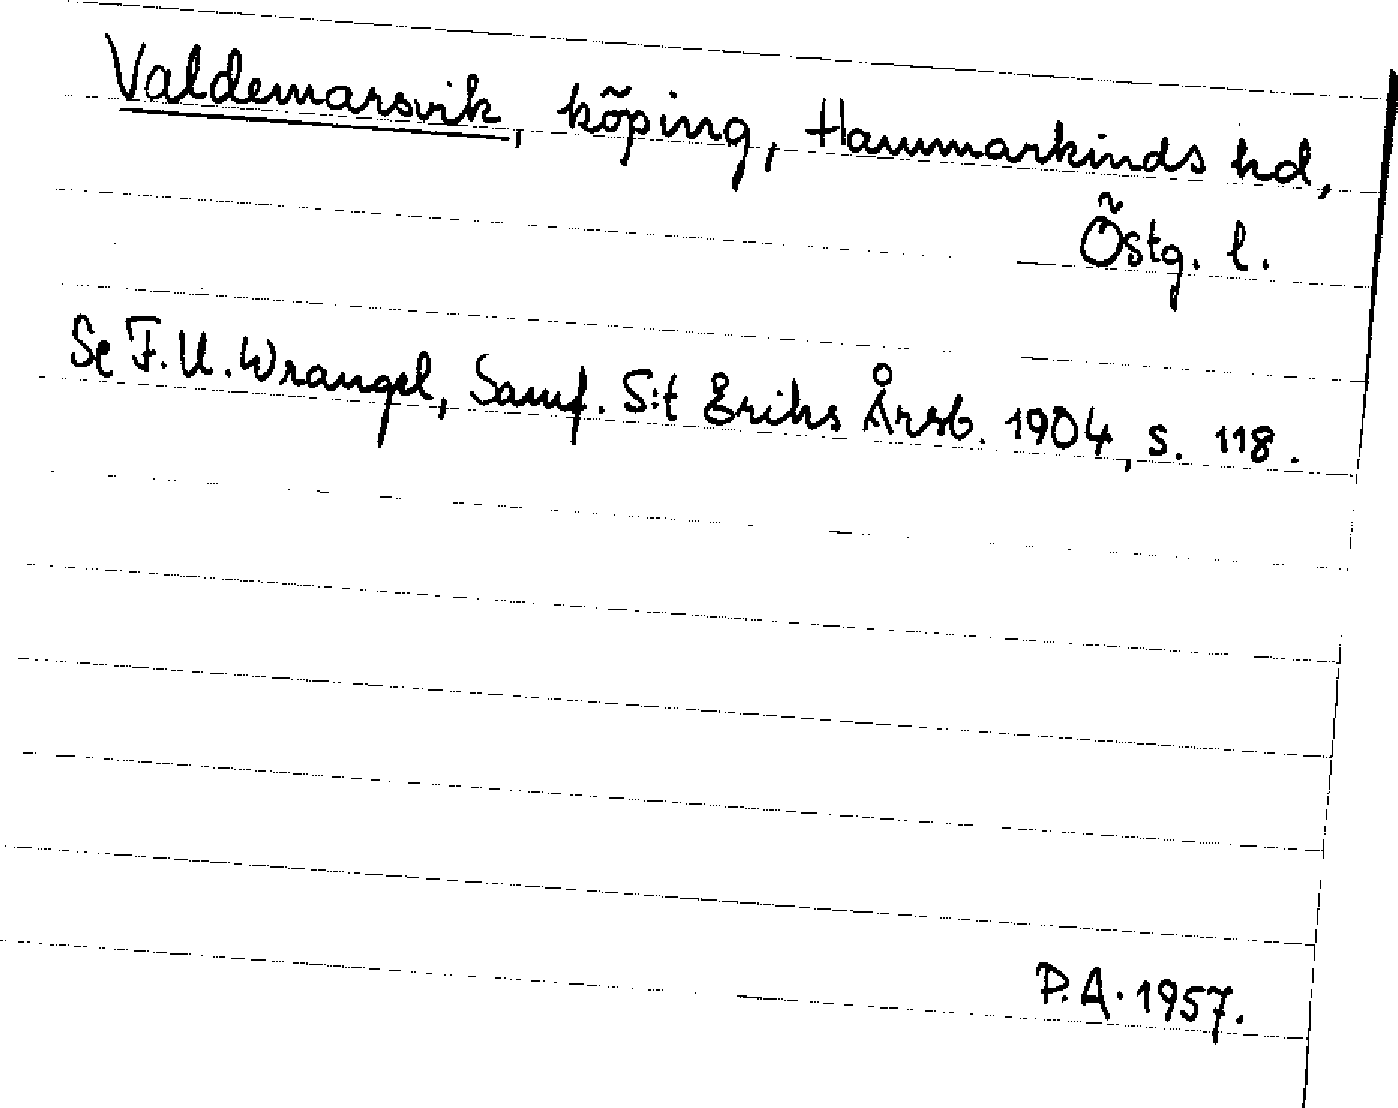 Valdemarsvik, köping, Hammarkinds hd,
Östg. l.
Se F. U. Wrangel, Samf. S:t Eriks Årsb. 1904, s. 118.
P. A. 1957.